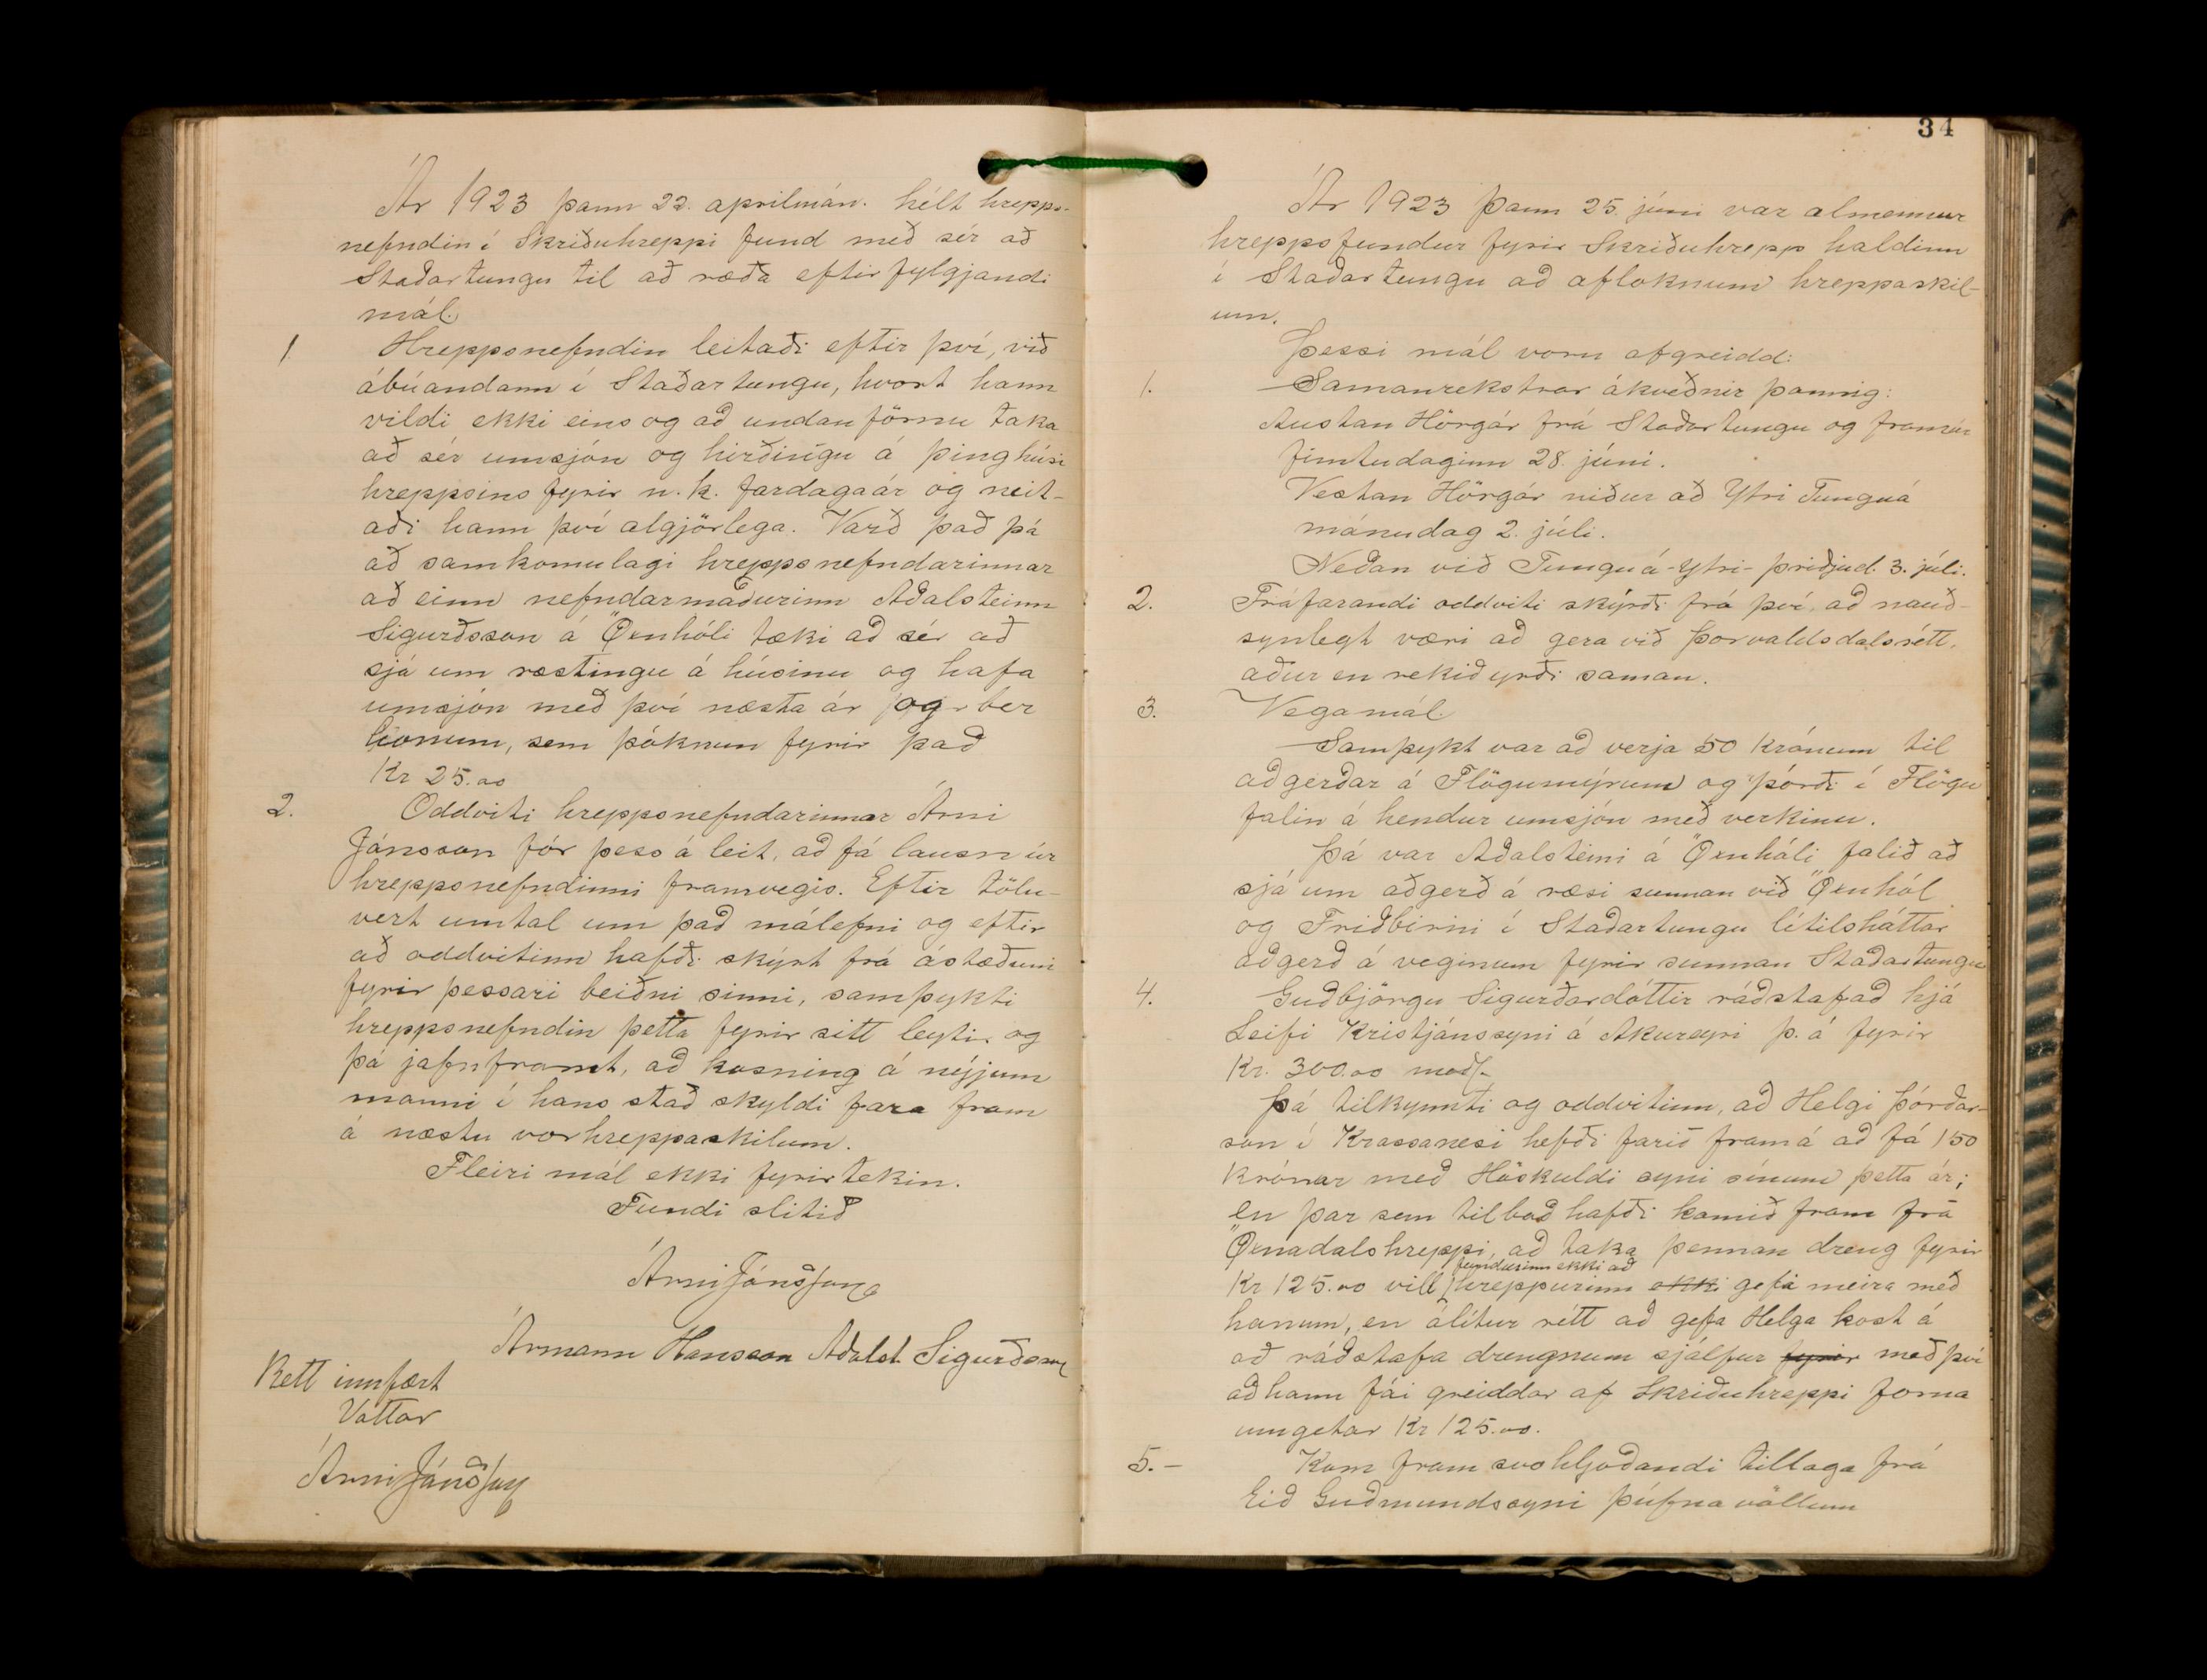 Ár 1923 þann 22. aprilmán. hélt hrepps-
nefndin í Skriðuhreppi fund með sér að
Staðartungu til að ræða eftirfylgjandi
mál.
1 Hreppsnefndin leitaði eftir því, við
ábúandann í Staðartungu, hvort hann
vildi ekki eins og að undanförnu taka
að sér umsjón og hirðingu á þinghúsi
hreppsins fyrir n.k. fardagaár og neit-
aði hann því algjörlega. Varð það þá
að samkomulagi hreppsnefndarinnar
að einn nefndarmaðurinn Aðalsteinn
Sigurðsson á Öxnhóli tæki að sér að
sjá um ræstingu á húsinu og hafa
umsjón með því næsta ár og ber
honum, sem þóknun fyrir það
Kr 25.00
2. Oddviti hreppsnefndarinnar Árni
Jónsson fór þess á leit, að fá lausn úr
hreppsnefndinni framvegis. Eftir tölu-
vert umtal um það málefni og eftir
að oddvitinn hafði skýrt frá ástæðum
fyrir þessari beiðni sinni, samþykti
hreppsnefndin þetta fyrir sitt leyti og
þá jafnframt, að kosning á nýjum
manni í hans stað skyldi fara fram
á næstu vorhreppaskilum.
Fleiri mál ekki fyrirtekin.
Fundi slitið
Árni Jónsson
Ármann Hansson Aðalst. Sigurðsson
Rétt innfært
Vottar
Árni Jónsson
34
Ár 1923 Þann 25. júni var almennur
hreppsfundur fyrir Skriðuhrepp haldinn
í Staðartungu að afloknum hreppaskil-
um.
Þessi mál voru afgreidd:
1. Samanrekstrar ákveðnir þannig:
Austan Hörgár frá Staðartungu og framúr
fimtudaginn 28. júni.
Vestan Hörgár niður að Ytri Tunguá
mánudag 2. júli.
Neðan við Tunguá-Ytri- þriðjud. 3. júli.
2. Fráfarandi oddviti skýrði frá því, að nauð-
synlegt væri að gera við Þorvaldsdalsrétt,
aður en rekið yrði saman.
3. Vegamál.
Samþykt var að verja 50 krónum til
aðgerðar á Flögumýrum og Þórði í Flögu
falin á hendur umsjón með verkinu.
Þá var Aðalsteini á Öxnhóli falið að
sjá um aðgerð á ræsi sunnan við Öxnhól
og Friðbirni í Staðartungu lítilsháttar
aðgerð á veginum fyrir sunnan Staðartungu
4. Guðbjörgu Sigurðardóttir ráðstafað hjá
Leifi Kristjánssyni á Akureyri þ. á fyrir
Kr. 300.00 með.
Þá tilkynnti og oddvitinn, að Helgi Þórðar-
son í Krossanesi hefði farið fram á að fá 150
krónar með Höskuldi syni sínum þetta ár;
en þar sem tilboð hafði komið fram frá
Öxnadalshreppi, að taka þennan dreng fyrir
fundurinn ekki að
Kr 125.00 vill hreppurinn ekki gefa meira með
honum, en álítur rétt að gefa Helga kost á
að ráðstafa drengnum sjálfur fyrir með því
að hann fái greiddar af Skriðuhreppi forna
umgetar Kr 125.00.
5. – Kom fram svohljoðandi tillaga frá
Eið Guðmundssyni Þúfnavöllum